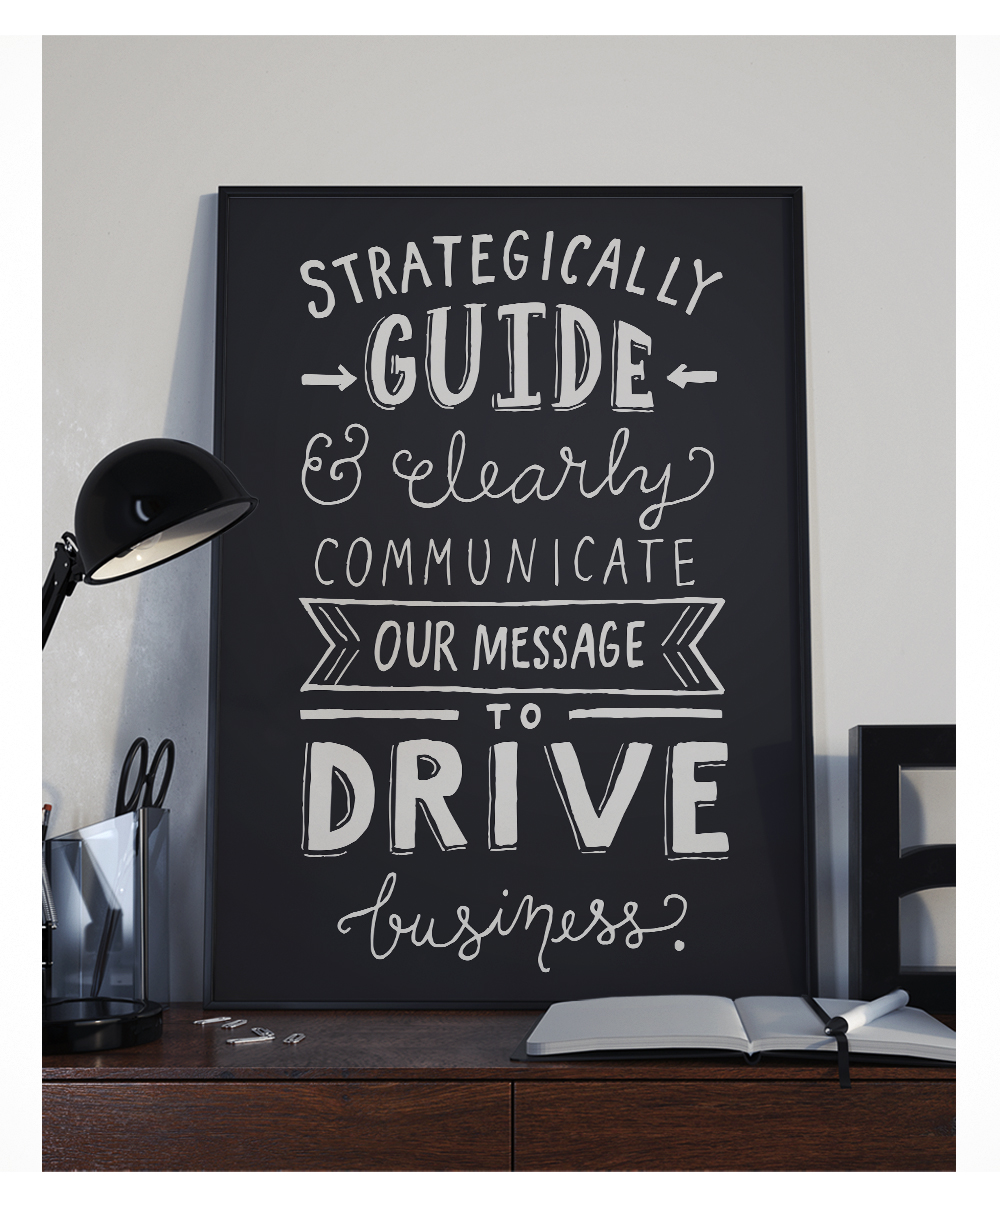 STRATEGICALLY
GUIDE
& clearly
COMMUNICATE
OUR MESSAGE
TO
DRIVE
business.